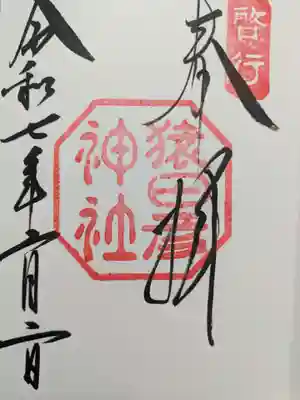 啓行
奉拝
猿田彦
神社
令和七年六月二日